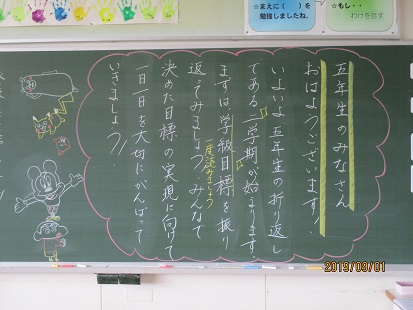 ☆まえに（　）を
勉強しましたね。
☆もし・・
わけを話す
五年生のみなさん
おはようございます!
いよいよ五年生の折り返し
である二学期が始まります。
まずは学級目標を振り
一度読みましょう
返ってみましょう。みんなで
決めた目標の実現に向けて
一日一日を大切にがんばって
いきましょう!!
2019/09/01